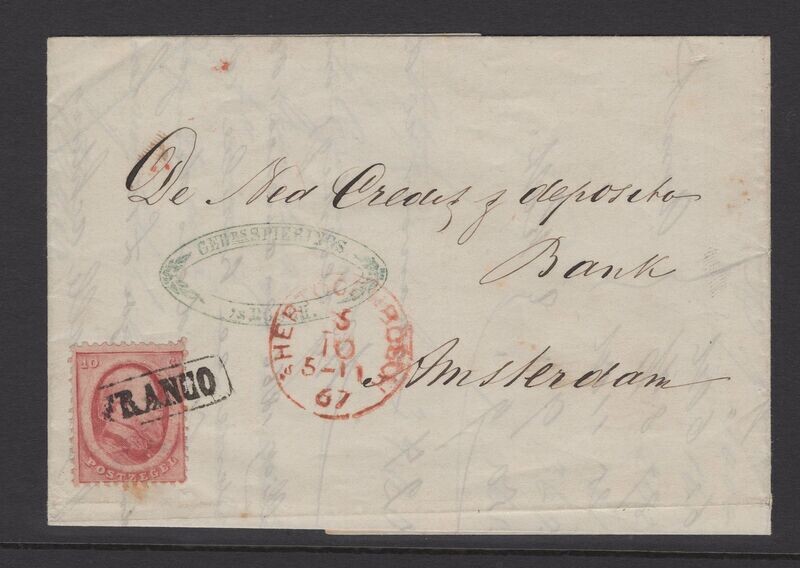 De Ned Credit & deposito
Bank
Amsterdam
GEBRS SPIERINGS
'S BOSCH.
'S HERTOGENBOSCH
3
10
5-11
67
10 C
FRANCO
POSTZEGEL